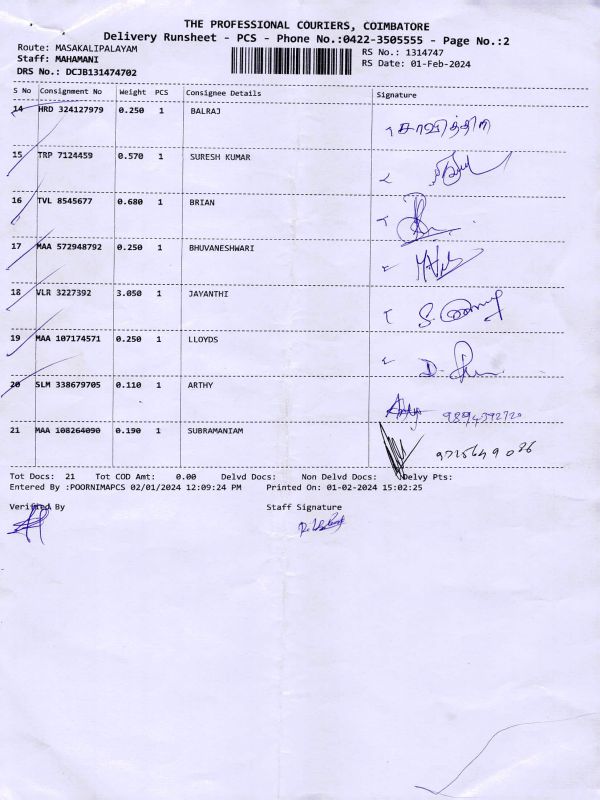 THE PROFESSIONAL COURIERS, COIMBATORE
Delivery Runsheet - PCS - Phone No.:0422-3505555 - Page No.:2
Route: MASAKALIPALAYAM
Staff: MAHAMANI
DRS No.: DCJB131474702
RS No.: 1314747
RS Date: 01-Feb-2024
S No Consignment No Weight PCS Consignee Details Signature
14 HRD 324127979 0.250 1 BALRAJ சாவித்திரி
15 TRP 7124459 0.570 1 SURESH KUMAR
16 TVL 8545677 0.680 1 BRIAN
17 MAA 572948792 0.250 1 BHUVANESHWARI
18 VLR 3227392 3.050 1 JAYANTHI
19 MAA 107174571 0.250 1 LLOYDS
20 SLM 338679705 0.110 1 ARTHY 9894392720
21 MAA 108264090 0.190 1 SUBRAMANIAM
Tot Docs: 21 Tot COD Amt: 0.00 Delvd Docs: Non Delvd Docs: Delvy Pts:
Entered By :POORNIMAPCS 02/01/2024 12:09:24 PM Printed On: 01-02-2024 15:02:25
Verified By Staff Signature